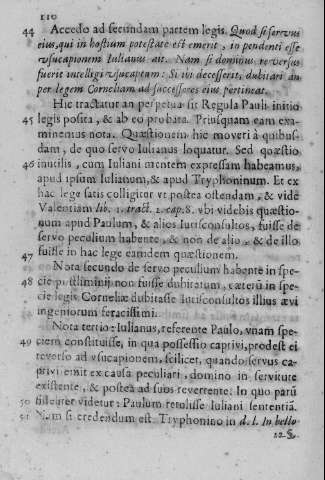 110
44 Accedo ad secundam partem legis. Quod si servus
eius, qui in hostium potestate est emerit, in pendenti esse
vsucapionem Iulianus ait. Nam si dominus reversus
fuerit intelligi vsucaptum: Si ibi decesserit, dubitari an
per legem Corneliam ad successores eius pertineat.
Hic tractatur an perpetua sit Regula Pauli initio
45 legis posita, & ab eo probata. Priusquam eam exa-
minemus nota. Quæstionem hic moveri à quibus-
dam, de quo servo Iulianus loquatur. Sed quæstio
46 inutilis, cum Iuliani mentem expressam habeamus,
apud ipsum Iulianum, & apud Tryphoninum. Et ex
hac lege satis colligitur vt postea ostendam, & vide
Valentiam lib. 1. tract. 2. cap. 8. vbi videbis quæstio-
num apud Paulum, & alios Iurisconsultos, fuisse de
servo peculium habente, & non de alio, & de illo
47 fuisse in hac lege eamdem quæstionem.
Nota secundo de servo peculium habente in spe-
48 cie postliminij non fuisse dubitatum, cæterũ in spe-
cie legis Corneliæ dubitasse Iurisconsultos illius ævi
ingeniorum feracissimi.
Nota tertio: Iulianus, referente Paulo, vnam spe-
49 ciem constituisse, in qua possessio captivi, prodest ei
reverso ad vsucapionem, scilicet, quando servus ca-
ptivi emit ex causa peculiari, domino in servitute
existente, & postea ad suos revertente. In quo parũ
50 fideliter videtur: Paulum retulisse Iuliani sententiã.
51 Nam si credendum est Tryphonino in d. l. In bello
12. §.